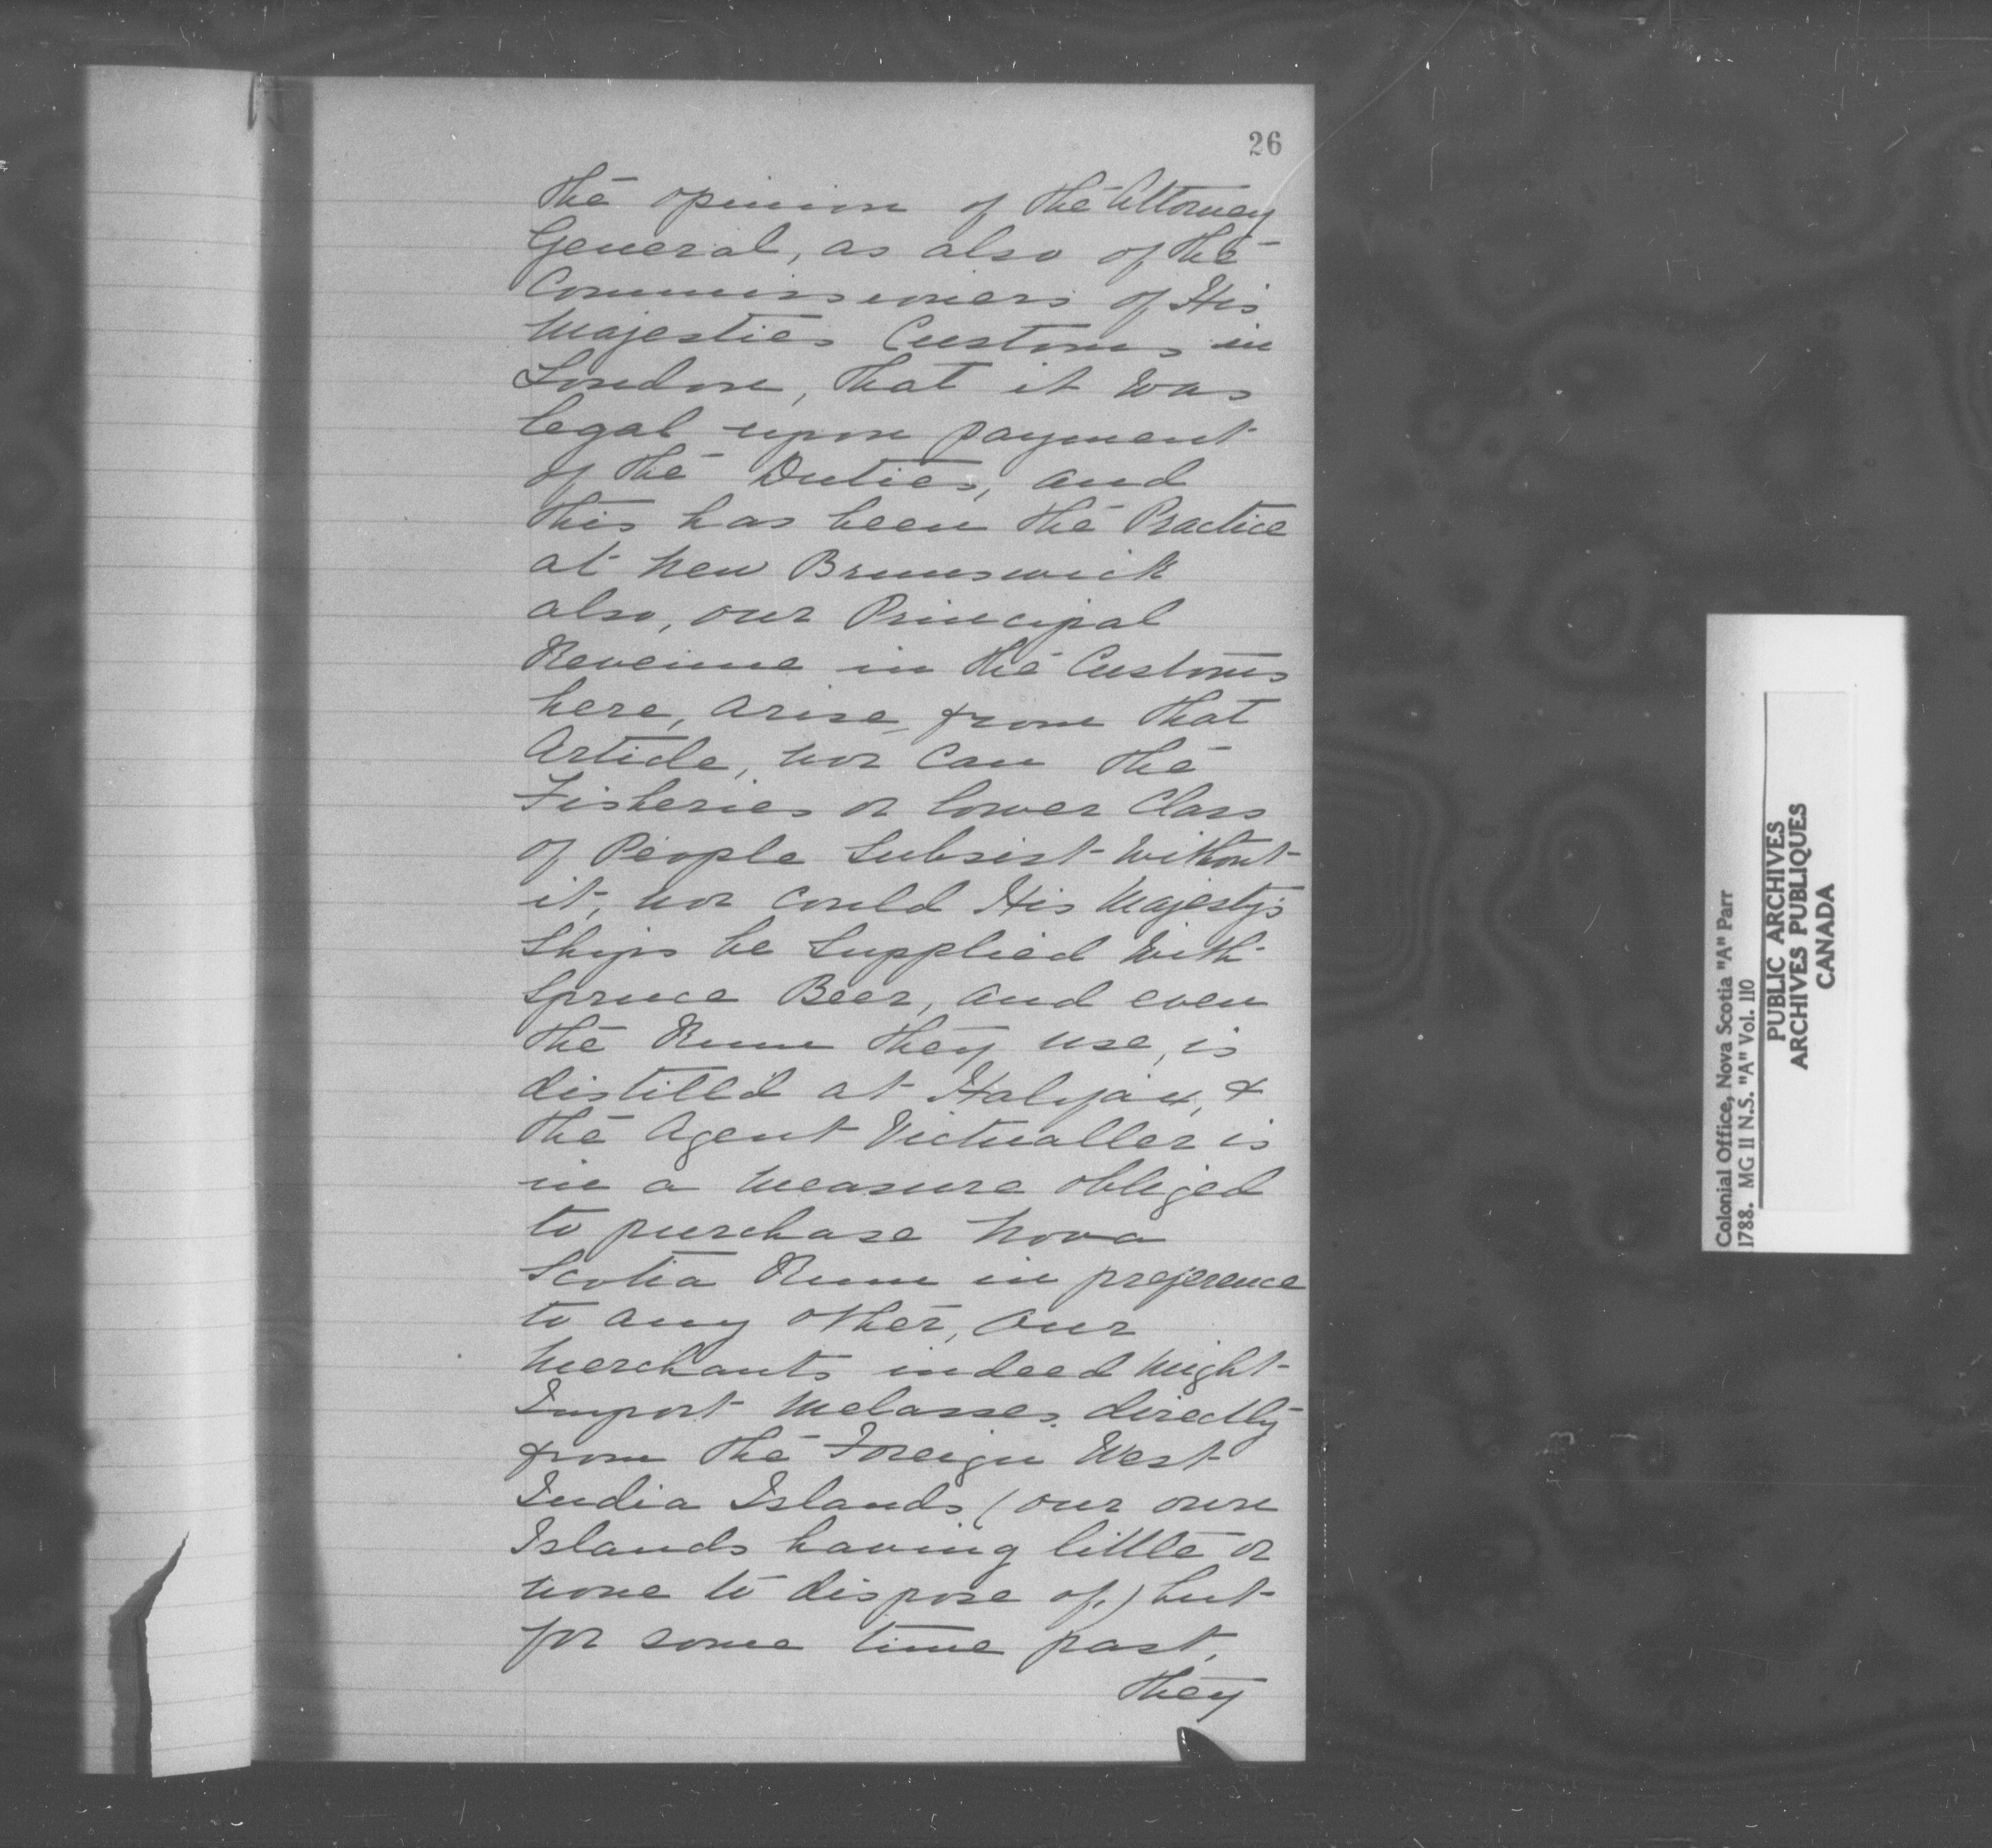 26
the opinion of the Attorney
General, as also of the
Commissioners of His
Majesties Customs in
London, that it was
legal upon payment
of the Duties, and
this has been the Practice
at New Brunswick
also, our Principal
Revenue in the Customs
here, arise, from that
Article, nor can the
Fisheries or lower Class
of People Subsist without
it, nor could His Majesty's
Ships be Supplied with
Spruce Beer, and even
the Rum they use, is
distill'd at Halifax, &
the Agent Victualler is
in a measure obliged
to purchase Nova
Scotia Rum in preference
to any other, our
Merchants indeed might
Import Melasses directly
from the Foreign West
India Islands (our own
Islands having little or
none to dispose of,) but
for some time past,
they
Colonial Office, Nova Scotia "A" Parr
1788. MG II N.S. "A" Vol. 110
PUBLIC ARCHIVES
ARCHIVES PUBLIQUES
CANADA